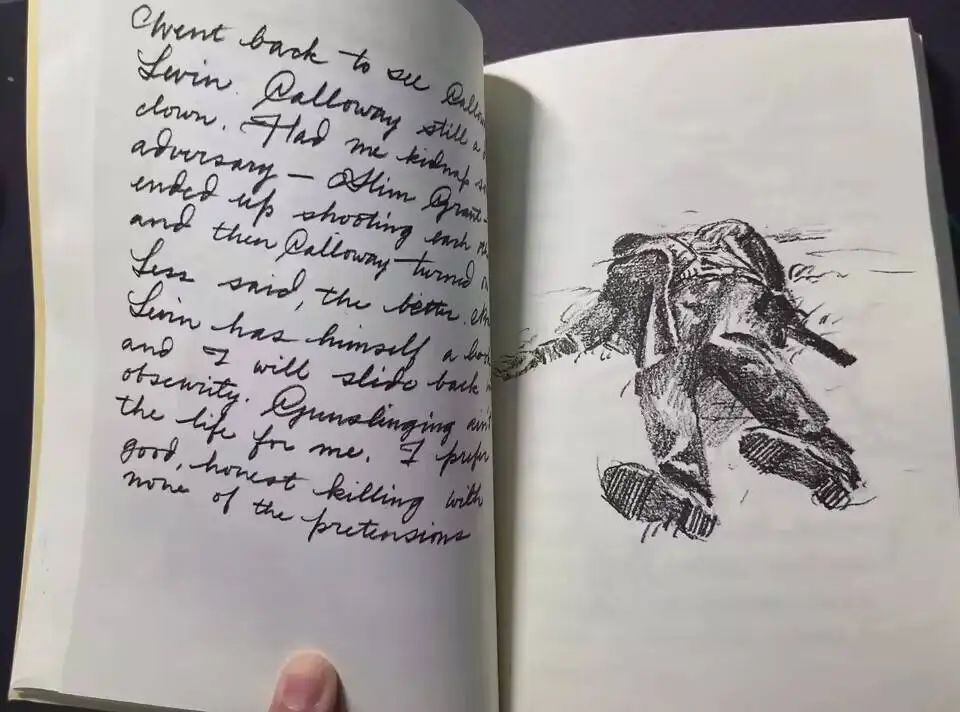 Went back to see
Levin. Calloway still a
clown. Had me kidnap
adversary — Slim Grant
ended up shooting each
and then Calloway turned
Less said, the better.
Levin has himself a
and I will slide back
obscurity. Gunslinging ain't
the life for me. I prefer
good, honest killing with
none of the pretensions